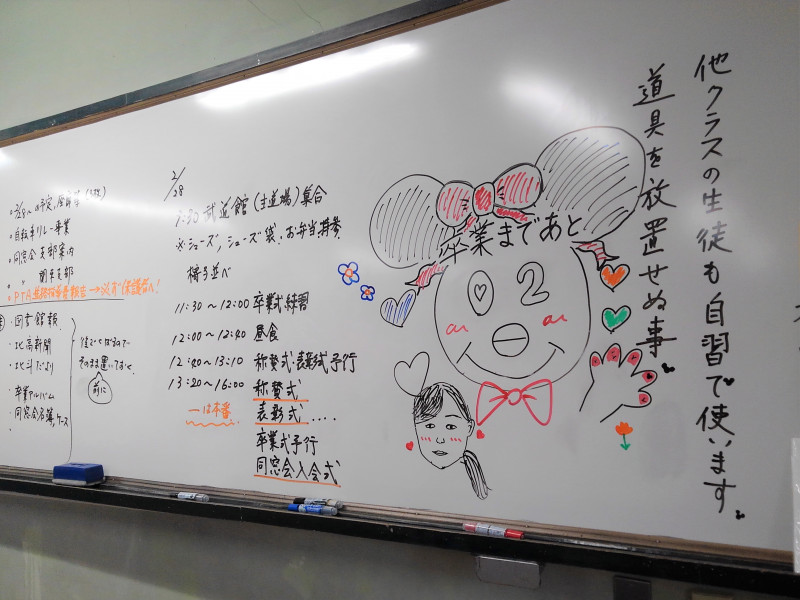 他クラスの生徒も自習で使います
道具を放置せぬ事
卒業まであと
02
2/28
武道館(主道場)集合
※シューズ,シューズ袋,お弁当,
椅子並べ
11:30~12:00 卒業式練習
12:00~12:40 昼食
12:40~13:10 称賛式・表彰式予行
13:20~16:00 称賛式
表彰式....
卒業式予行
同窓会入会式
~は本番
自転車リレー事業
同窓会 支部案内
〃 関東支部
・図書館報
・北高新聞
・北斗だより
・卒業アルバム
・同窓会名簿,ケース
そのまま置いておく。
前に